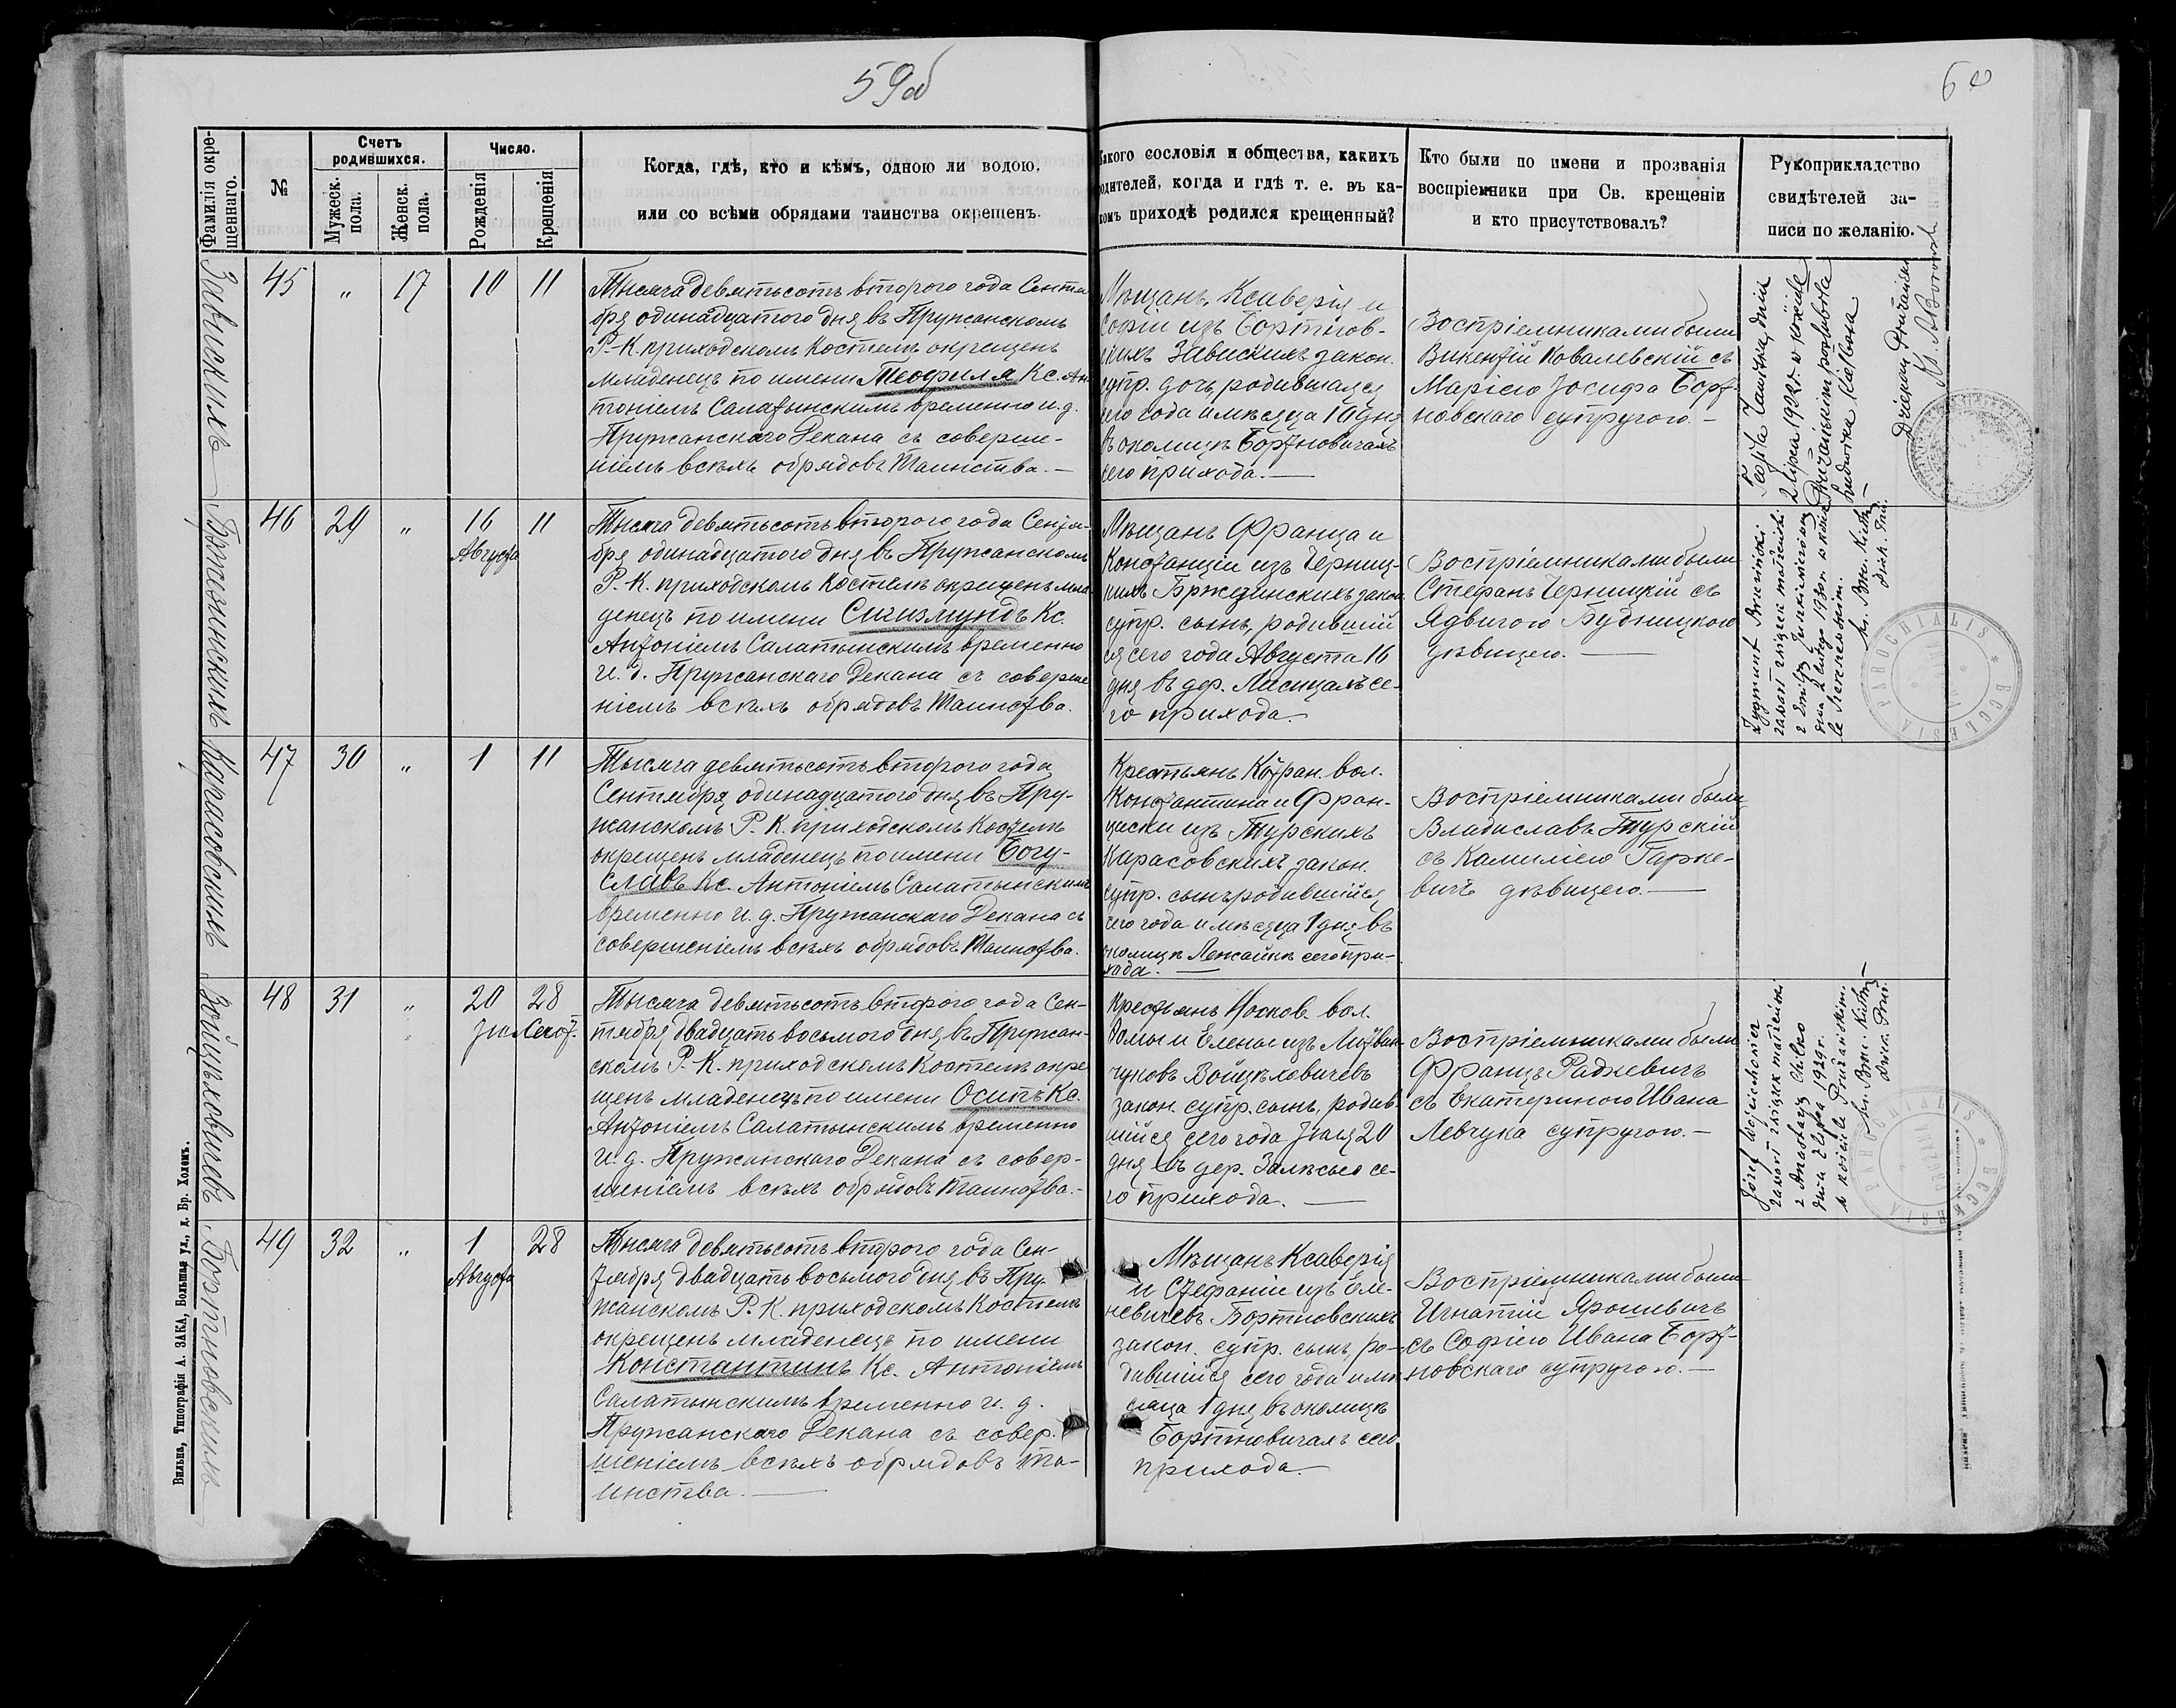 59об
60
Фамилія окре-
щеннаго.
№
Счетъ
родившихся.
Мужеск.
пола.
Женск.
пола.
Число.
Рожденія
Крещенія
Когда, гдѣ, кто и кѣмъ, одною ли водою,
или со всѣми обрядами таинства окрещенъ.
Какого сословія и общества, какихъ
родителей, когда и гдѣ т. е. въ ка-
комъ приходѣ родился крещенный?
Кто были по имени и прозванія
воспріемники при Св. крещеніи
и кто присутствовалъ?
Рукоприкладство
свидѣтелей за-
писи по желанію.
Завискихъ
45
"
17
10
11
Тысяча девятьсотъ второго года Сентя
бря одинадцатого дня въ Пружанскомъ
Р.-К. приходскомъ Костелѣ окрещенъ
младенецъ по имени Теофиля Кс. Ан
тоніемъ Салатынскимъ временно и. д.
Пружанскаго Декана съ соверше-
ніемъ всѣхъ обрядовъ Таинства. —
Мѣщанъ, Ксаверія и
Софіи изъ Бортнов-
скихъ Завискихъ закон.
супр. дочь, родившаяся
сего года и мѣсяца 10 дня
въ околицѣ Бортновичахъ
сего прихода. —
Воспріемниками были
Викентій Ковалевскій съ
Маріею Іосифа Борт-
новскаго супругою. —
Teofila Zawiska, dnia
2 lipca 1922 r. w kościele
Prużańskim poślubiła
Ludwika
Dziekan Prużański
Бржезинскихъ
46
29
"
16
Августа
11
Тысяча девятьсотъ второго года Сентя-
бря одинадцатого дня въ Пружанскомъ
Р. К. приходскомъ Костелѣ окрещенъ мла
денецъ по имени Сигизмундъ Кс.
Антоніемъ Салатынскимъ временно
и. д. Пружанскаго Декана съ соверше
ніемъ всѣхъ обрядовъ Таинства.
Мѣщанъ Франца и
Констанціи изъ Черниц-
кихъ Бржезинскихъ закон.
супр. сынъ, родившій
ся сего года Августа 16
дня въ дер. Лисицахъ се-
го прихода. —
Воспріемниками были
Стефанъ Черницкій съ
Ядвигою Будницкою
дѣвицею. —
Zygmunt Brzeziński
zawarł związek małżeński
z Emilją
dnia 2 lutego 1930 r. w koście
le Szereszewskim.
ECCLESIA PAROCHIALIS
Карасовскихъ
47
30
"
1
11
Тысяча девятьсотъ второго года
Сентября, одинадцатого дня, въ Пру-
жанскомъ Р. К. приходскомъ Костелѣ
окрещенъ младенецъ по имени Богу-
славъ Кс. Антоніемъ Салатынскимъ
временно и. д. Пружанскаго Декана съ
совершеніемъ всѣхъ обрядовъ Таинства.
Константина и Фран-
циски изъ Турскихъ
Карасовскихъ закон.
супр. сынъ родившійся,
сего года и мѣсяца 1 дня въ
околицѣ Лежайкѣ сего при-
хода. —
Воспріемниками были
Владиславъ Турскій
съ Камиліею Гарке-
вичъ дѣвицею. —
Войцѣховичевъ
48
31
"
20
28
Тысяча девятьсотъ второго года Сен-
тября двадцать восьмого дня, въ Пружан-
скомъ Р. К. приходскомъ Костелѣ окре
щенъ младенецъ по имени Осипъ Кс.
Антоніемъ Салатынскимъ временно
и. д. Пружанскаго Декана съ совер-
шеніемъ всѣхъ обрядовъ Таинства. -
Крестьянъ Носков. вол.
Томы и Елены изъ Литвин-
чуковъ Войцѣховичевъ
закон. супр. сынъ, родив-
шійся сего года Іюля 20
дня въ дер. Залѣсье се-
го прихода. —
Воспріемниками были
Францъ Радкевичъ
съ Екатериною Ивана
Левчука супругою. —
Józef Wójciechowicz
zawarł związek małżeński
z Anastazją Chilko
dnia 1929 r.
w kościele Prużańskim.
ECCLESIA PAROCHIALIS
Бортновскихъ
49
32
"
1
Августа
28
Тысяча девятьсотъ второго года Сен-
тября двадцать восьмого дня въ Пру-
жанскомъ Р. К. приходскомъ Костелѣ
окрещенъ младенецъ по имени
Константинъ Кс. Антоніемъ
Салатынскимъ временно и. д.
Пружанскаго Декана съ совер-
шеніемъ всѣхъ обрядовъ та-
инства. —
Мѣщанъ Ксаверія
и Стефаніи изъ Еле-
невичевъ Бортновскихъ
закон. супр. сынъ, ро-
дившійся сего года и мѣ
сяца 1 дня, въ околицѣ
Бортновичахъ сего
прихода. —
Воспріемниками были
Игнатій Ярошевичъ
съ Софіею Ивана Борт-
новскаго супругою. —
Вильна, Типографія А. ЗАКА, Большая ул., д. Бр. Холемъ.